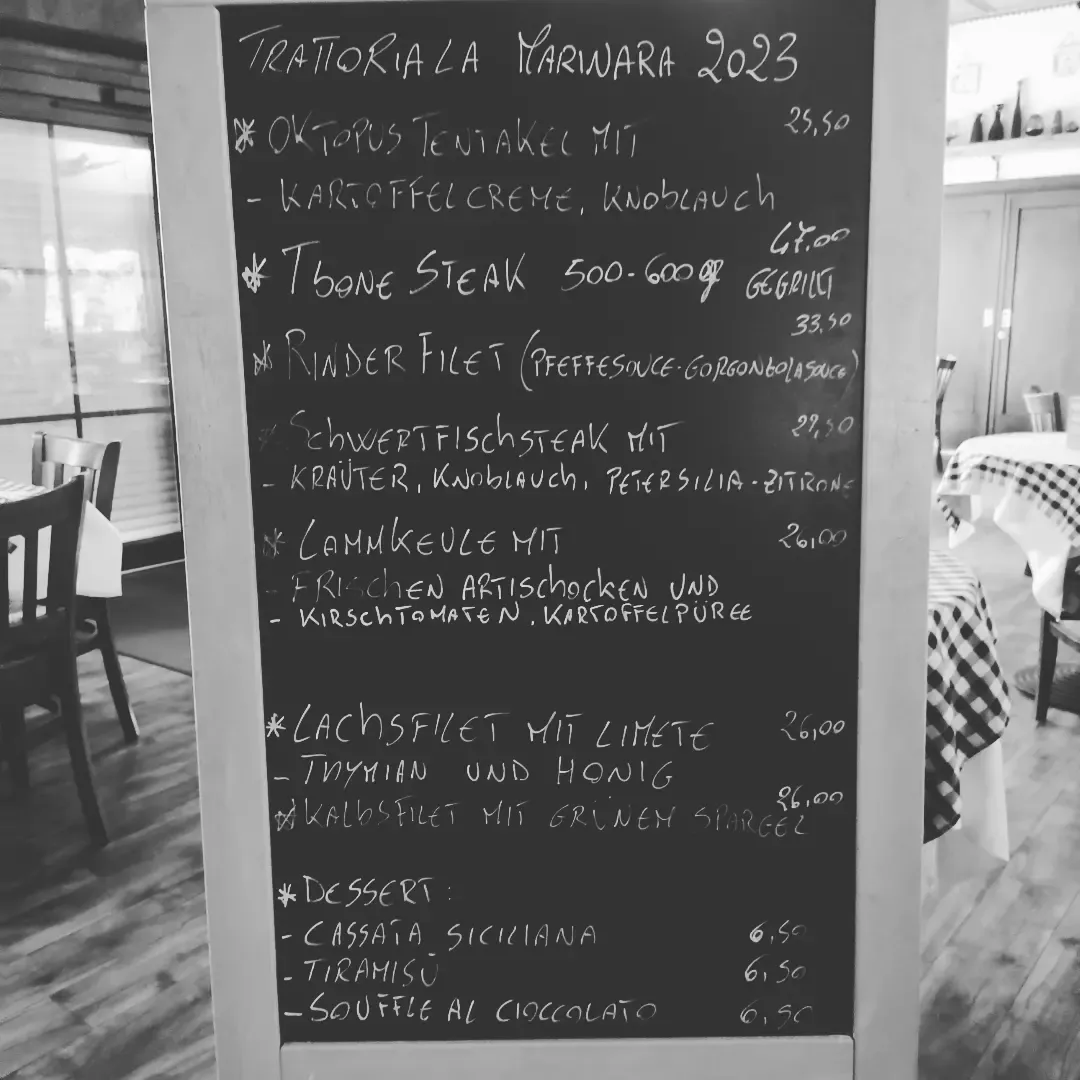 TRATTORIA LA MARINARA 2023
* OKTOPUS TENTAKEL MIT 25,50
- KARTOFFELCREME, KNOBLAUCH
47.00
* TBONE STEAK 500-600 gr GEGRILLT
33,50
* RINDER FILET (PFEFFESOUCE-GORGONZOLASOUCE)
* SCHWERTFISCHSTEAK MIT 29,50
- KRAÜTER, KNOBLAUCH, PETERSILIA-ZITRONE
* LAMMKEULE MIT 26,00
- FRISCHEN ARTISCHOCKEN UND
- KIRSCHTOMATEN, KARTOFFELPÜREE
* LACHSFILET MIT LIMETE 26,00
- THYMIAN UND HONIG
26,00
* KALBSFILET MIT GRÜNEM SPARGEL
* DESSERT:
- CASSATA SICILIANA 6,50
- TIRAMISÙ 6,50
- SOUFFLE AL CIOCCOLATO 6,50